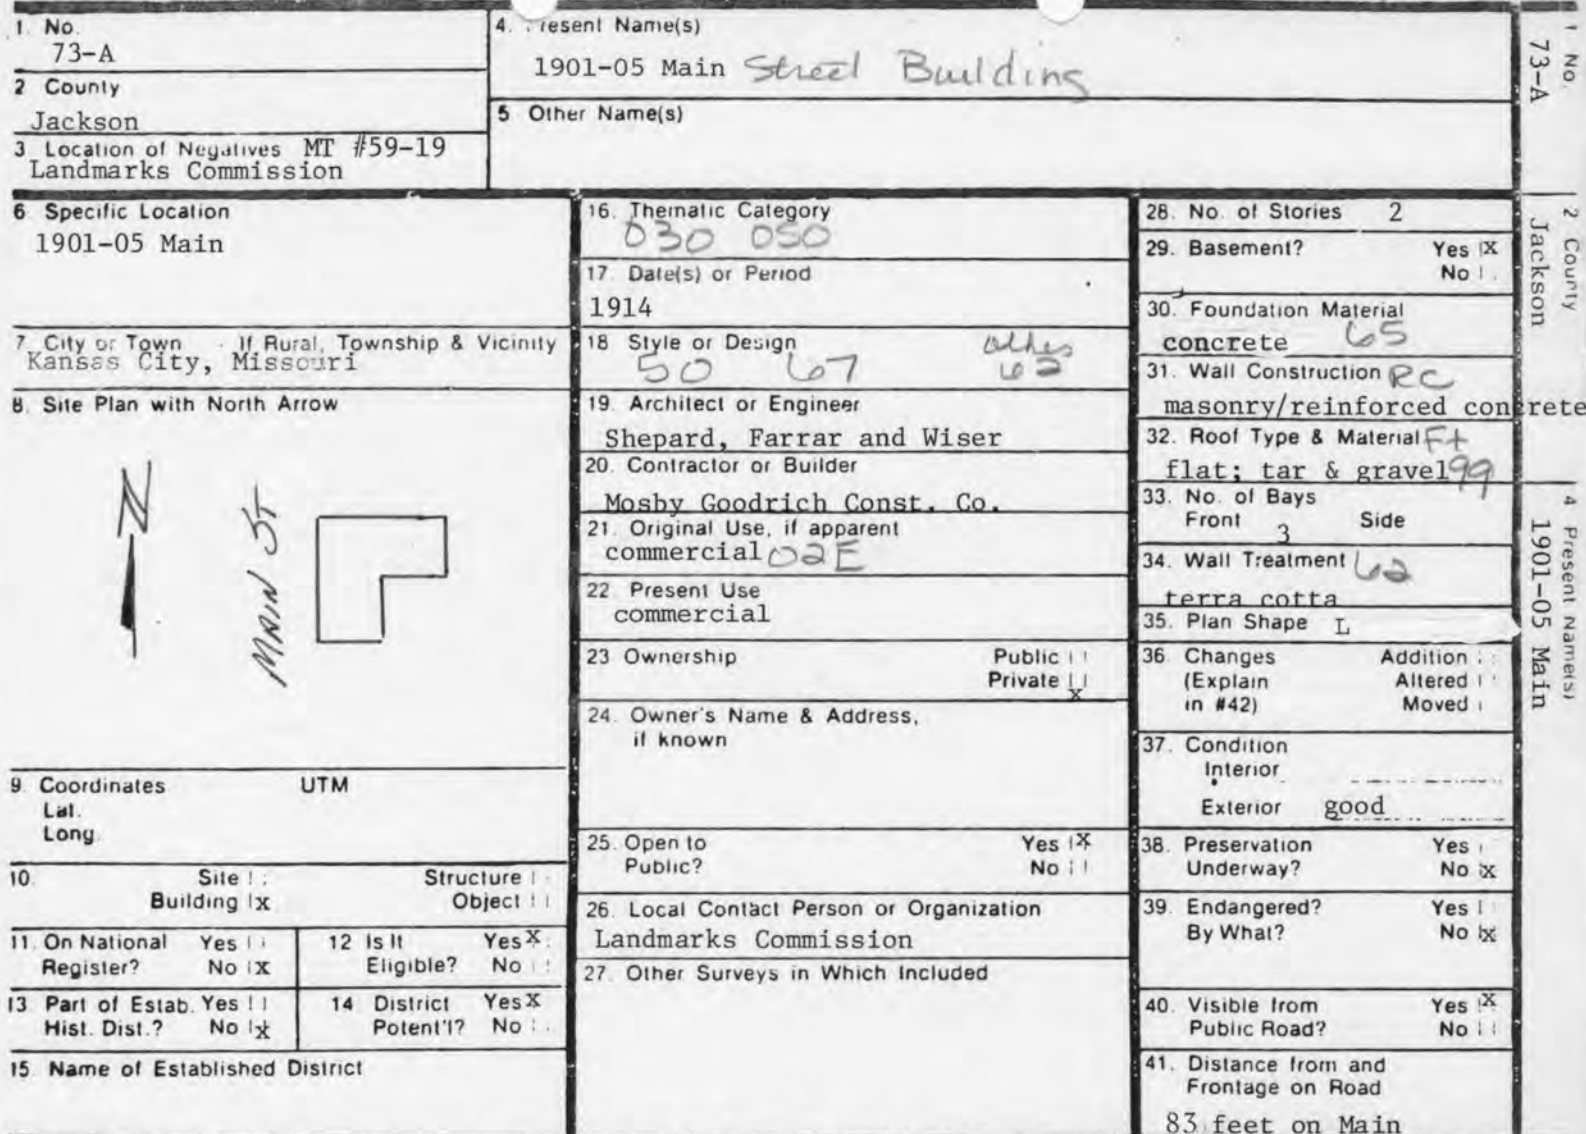 1. No.
73-A
2 County
Jackson
3 Location of Negatives MT #59-19
Landmarks Commission
4. Present Name(s)
1901-05 Main Street Building
5 Other Name(s)
6 Specific Location
1901-05 Main
7 City or Town If Rural, Township & Vicinity
Kansas City, Missouri
8. Site Plan with North Arrow
N
MAIN ST
9. Coordinates UTM
Lat.
Long.
10. Site Structure
Building x Object
11. On National Yes
Register? No x
12 Is It Yes X
Eligible? No
13 Part of Estab. Yes
Hist. Dist.? No x
14 District Yes X
Potent'l? No
15 Name of Established District
16. Thematic Category
030 050
17 Date(s) or Period
1914
18 Style or Design other
50 67 62
19. Architect or Engineer
Shepard, Farrar and Wiser
20. Contractor or Builder
Mosby Goodrich Const. Co.
21. Original Use, if apparent
commercial 02E
22. Present Use
commercial
23 Ownership Public
Private x
24. Owner's Name & Address,
if known
25. Open to Yes X
Public? No
26. Local Contact Person or Organization
Landmarks Commission
27. Other Surveys in Which Included
28. No. of Stories 2
29. Basement? Yes X
No
30. Foundation Material
concrete 65
31. Wall Construction RC
masonry/reinforced concrete
32. Roof Type & Material Ft
flat; tar & gravel 99
33. No. of Bays
Front 3 Side
34. Wall Treatment 62
terra cotta
35. Plan Shape L
36 Changes Addition
(Explain Altered
in #42) Moved
37. Condition
Interior
Exterior good
38. Preservation Yes
Underway? No x
39. Endangered? Yes
By What? No x
40. Visible from Yes X
Public Road? No
41. Distance from and
Frontage on Road
83 feet on Main
1 No.
73-A
2 County
Jackson
4 Present Name(s)
1901-05 Main